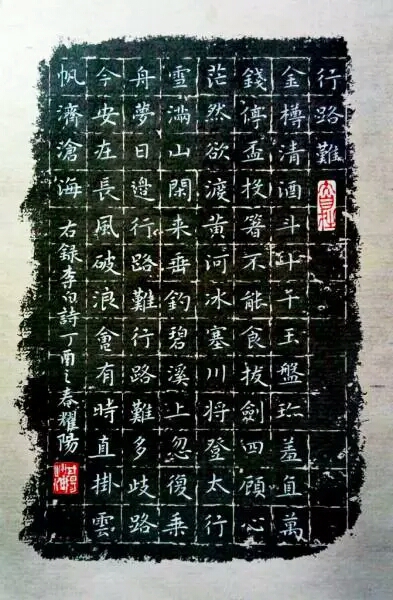 行路難
金樽清酒斗十千玉盤珎羞直萬
錢停盃投箸不能食拔劍四顧心
茫然欲渡黃河冰塞川將登太行
雪滿山閑来垂釣碧溪上忽復乘
舟夢日邊行路難行路難多歧路
今安在長風破浪會有時直掛雲
帆濟滄海 右録李白詩丁酉之春耀陽